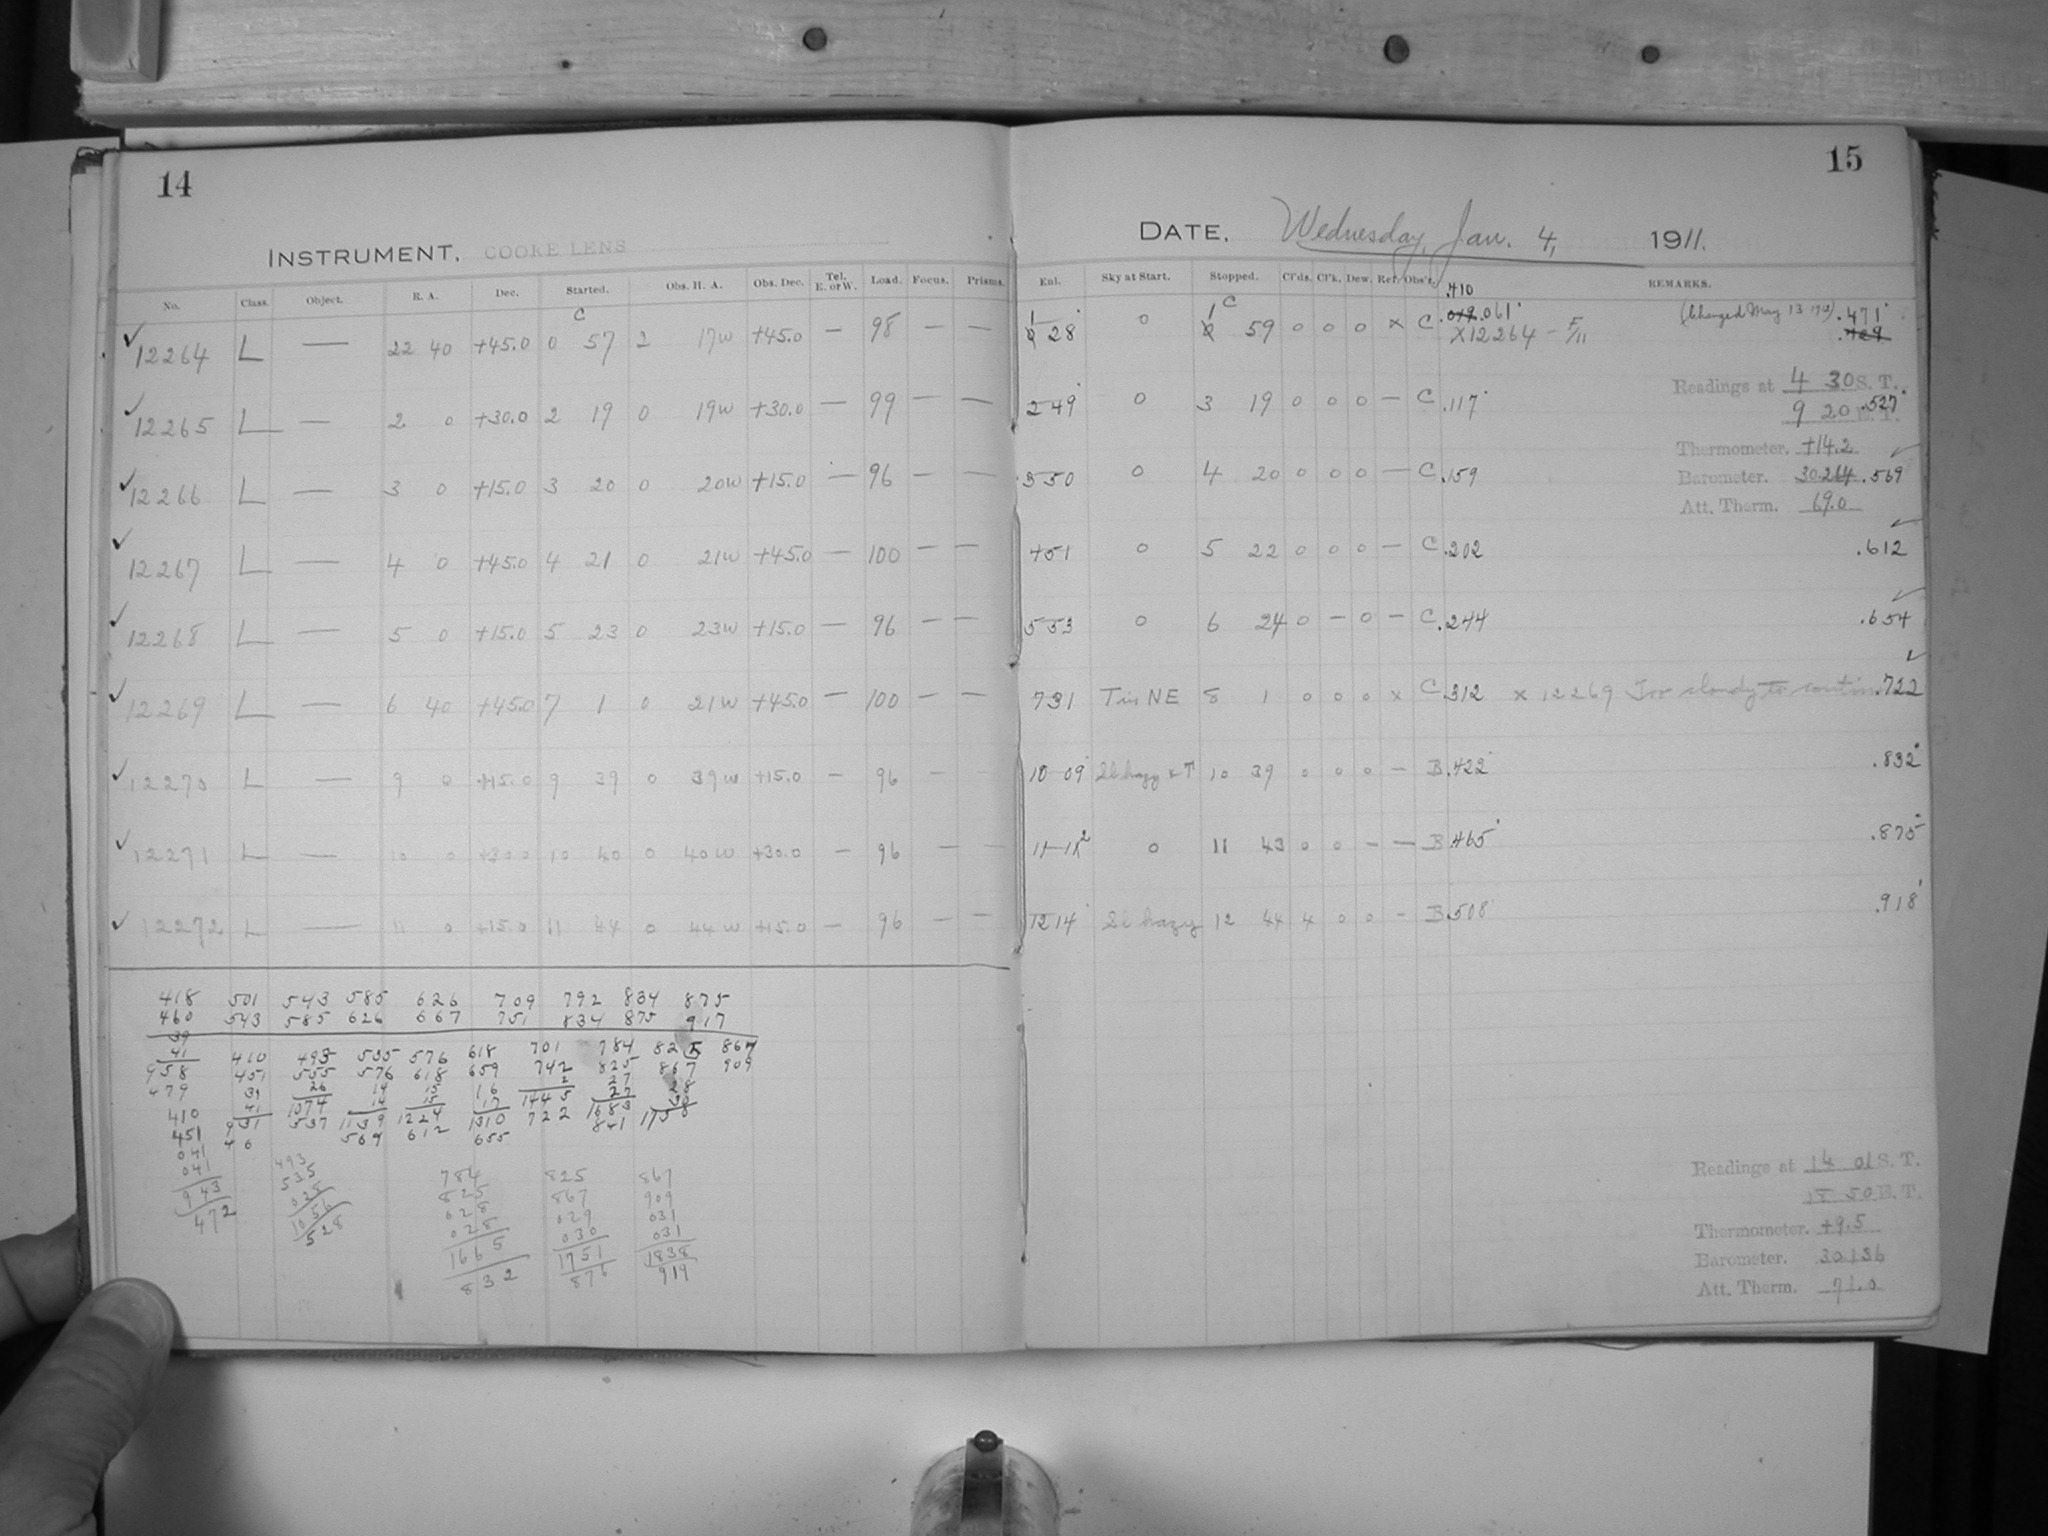 14
INSTRUMENT, COOKE LENS
No. Class. Object. R. A. Dec. Started. Obs. H. A. Obs. Dec. Tel. E. or W. Load. Focus. Prisms.
C
12264 L — 22 40 +45.0 0 57 2 17w +45.0 — 98 — —
12265 L — 2 0 +30.0 2 19 0 19w +30.0 — 99 — —
12266 L — 3 0 +15.0 3 20 0 20w +15.0 — 96 — —
12267 L — 4 0 +45.0 4 21 0 21w +45.0 — 100 — —
12268 L — 5 0 +15.0 5 23 0 23w +15.0 — 96 — —
12269 L — 6 40 +45.0 7 1 0 21w +45.0 — 100 — —
12270 L — 9 0 +15.0 9 39 0 39w +15.0 — 96 — —
12271 L — 10 0 +30.0 10 40 0 40w +30.0 — 96 — —
12272 L — 11 0 +15.0 11 44 0 44w +15.0 — 96 — —
418 501 543 585 626 709 792 834 875
460 543 585 626 667 751 834 875 917
39
41 410 493 535 576 618 701 784 825 867
958 451 535 576 618 659 742 825 867 909
479 39 26 14 15 16 2 27 28
410 41 1074 14 15 17 1445 27
451 931 537 1139 1224 1310 722 1683 1758
041 46 569 612 655 841
041 493 784 825 867
943 535 825 867 909
472 028 028 029 031
1056 028 030 031
528 1665 1751 1838
832 876 919
15
DATE, Wednesday, Jan. 4, 1911.
Enl. Sky at Start. Stopped. Cl'ds. Cl'k. Dew. Ref. Obs'r. REMARKS.
.410
1 28 0 1 C 59 0 0 0 x C .019 .061 (Changed May 13 1912) .471
X12264 – F/11
Readings at 4 30 S. T.
2 49 0 3 19 0 0 0 — C .117 .527
9 20 E. T.
Thermometer. +14.2
3 50 0 4 20 0 0 0 — C .159 Barometer. 30.264 .569
Att. Therm. 69.0
4 51 0 5 22 0 0 0 — C .202 .612
5 53 0 6 24 0 — 0 — C .244 .654
7 31 T in NE 8 1 0 0 0 x C .312 x 12269 Too cloudy to contin .722
10 09 Sl hazy & T 10 39 0 0 0 — B .422 .832
11 12 0 11 43 0 0 — — B .465 .875
12 14 Sl hazy 12 44 4 0 0 — B .508 .918
Readings at 14 01 S. T.
18 50 E. T.
Thermometer. +9.5
Barometer. 30.136
Att. Therm. 71.0